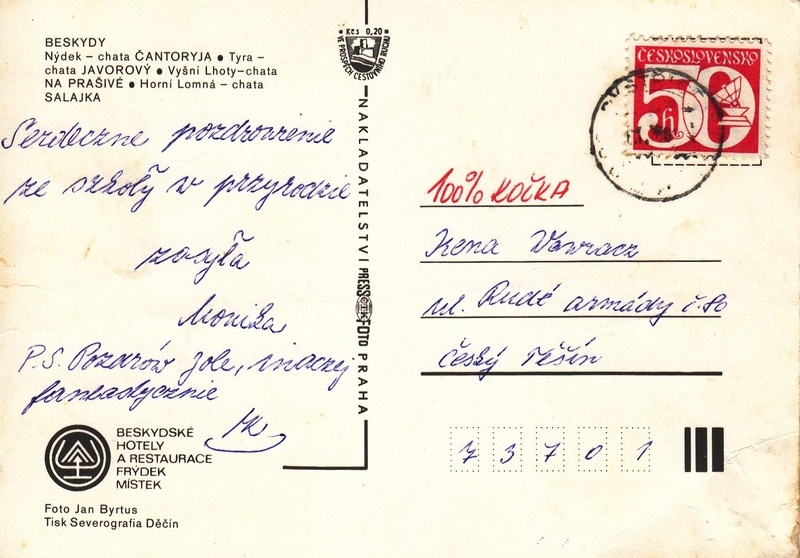 BESKYDY
Nýdek – chata ČANTORYJA • Tyra –
chata JAVOROVÝ • Vyšní Lhoty–chata
NA PRAŠIVÉ • Horní Lomná – chata
SALAJKA
Serdeczne pozdrowienie
ze szkoły w przyrodzie
zasyła
Monika
P.S. Pozdrów Jole, inaczej
fantastycznie
MK
BESKYDSKÉ
HOTELY
A RESTAURACE
FRÝDEK
MÍSTEK
Foto Jan Byrtus
Tisk Severografia Děčín
Kčs 0,20
VE PROSPĚCH CESTOVNÍHO RUCHU
NAKLADATELSTVÍ PRESSFOTO PRAHA
ČESKOSLOVENSKO
50 h
100% KOČKA
Irena Wawracz
ul. Rudé armády č. 80
Český Těšín
73701